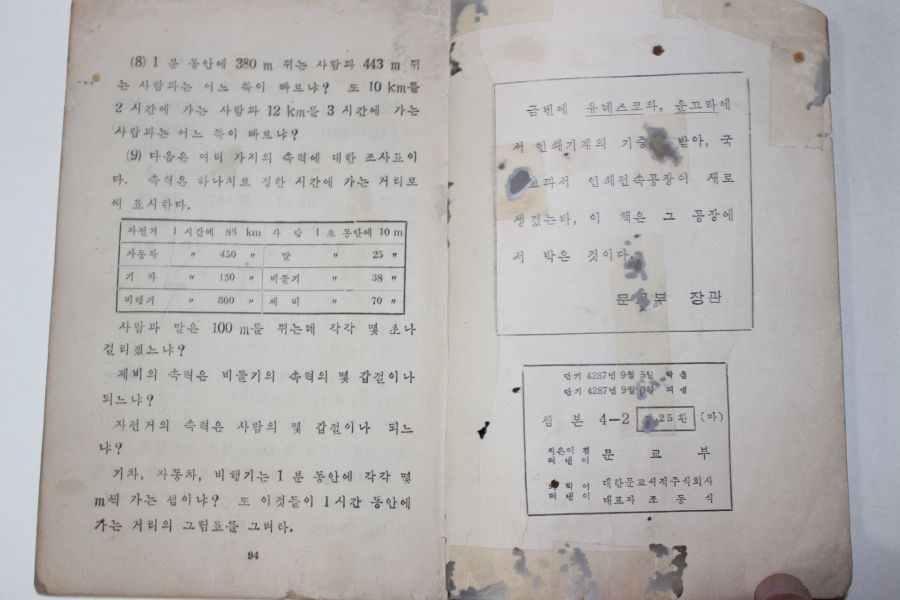 (8) 1 분 동안에 380 m 뛰는 사람과 443 m 뛰
는 사람과는 어느 쪽이 빠르냐? 또 10 km를
2 시간에 가는 사람과 12 km를 3 시간에 가는
사람과는 어느 쪽이 빠르냐?
(9) 다음은 여러 가지의 속력에 대한 조사표이
다. 속력은 하나치로 정한 시간에 가는 거리로
써 표시한다.
자전거 1 시간에 86 km 사 람 1 초 동안에 10 m
자동차 〃 450 〃 말 〃 25 〃
기 차 〃 130 〃 비둘기 〃 38 〃
비행기 〃 800 〃 제 비 〃 70 〃
사람과 말은 100 m를 뛰는데 각각 몇 초나
걸리겠느냐?
제비의 속력은 비둘기의 속력의 몇 갑절이나
되느냐?
자전거의 속력은 사람의 몇 갑절이나 되느
냐?
기차, 자동차, 비행기는 1 분 동안에 각각 몇
m씩 가는 셈이냐? 또 이것들이 1 시간 동안에
가는 거리의 그림표를 그려라.
94
금번에 유네스코와, 운끄라에
서 인쇄기계의 기증 받아, 국
교과서 인쇄전속공장이 새로
생겼는바, 이 책은 그 공장에
서 박은 것이다.
문교부 장관
단기 4287년 9월 5일 박음
단기 4287년 9월 펴냄
셈 본 4-2 25 환 (마)
지은이 겸
펴낸이 문 교 부
박아
펴낸이 대한문교서적주식회사
대표자 조 동 식